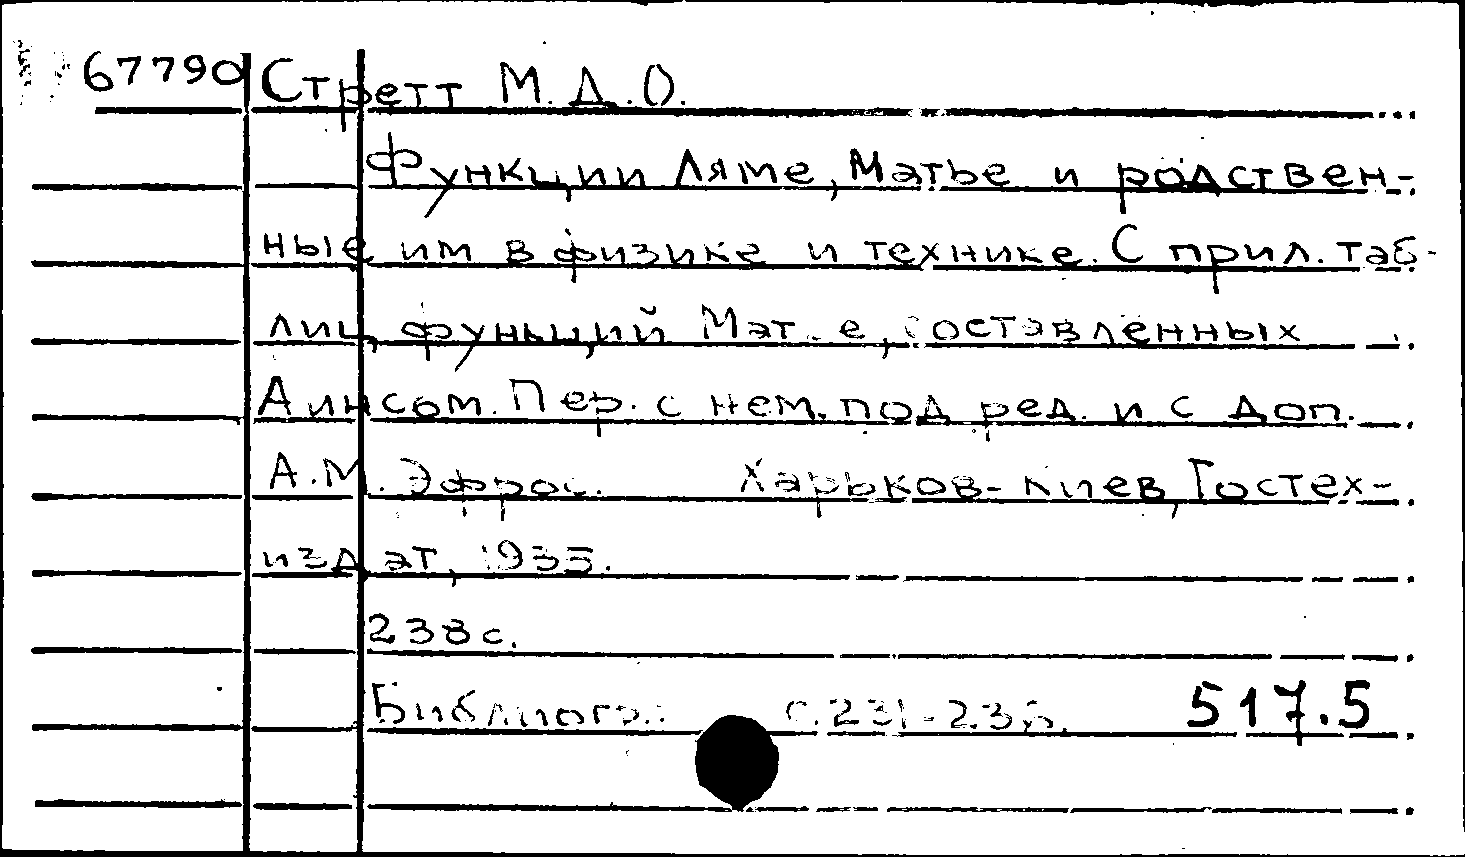 67790 Стретт М.Д.О.
Функции Ляме, Матье и родствен-
ные им в физике и технике. С прил. таб-
лиц функций Матье, составленных
Аинсом. Пер. с нем. под ред. и с доп.
А.М. Эфрос. Харьков-Киев, Гостех-
издат, 1935.
238 с.
Библиогр.: с. 231-236. 517.5